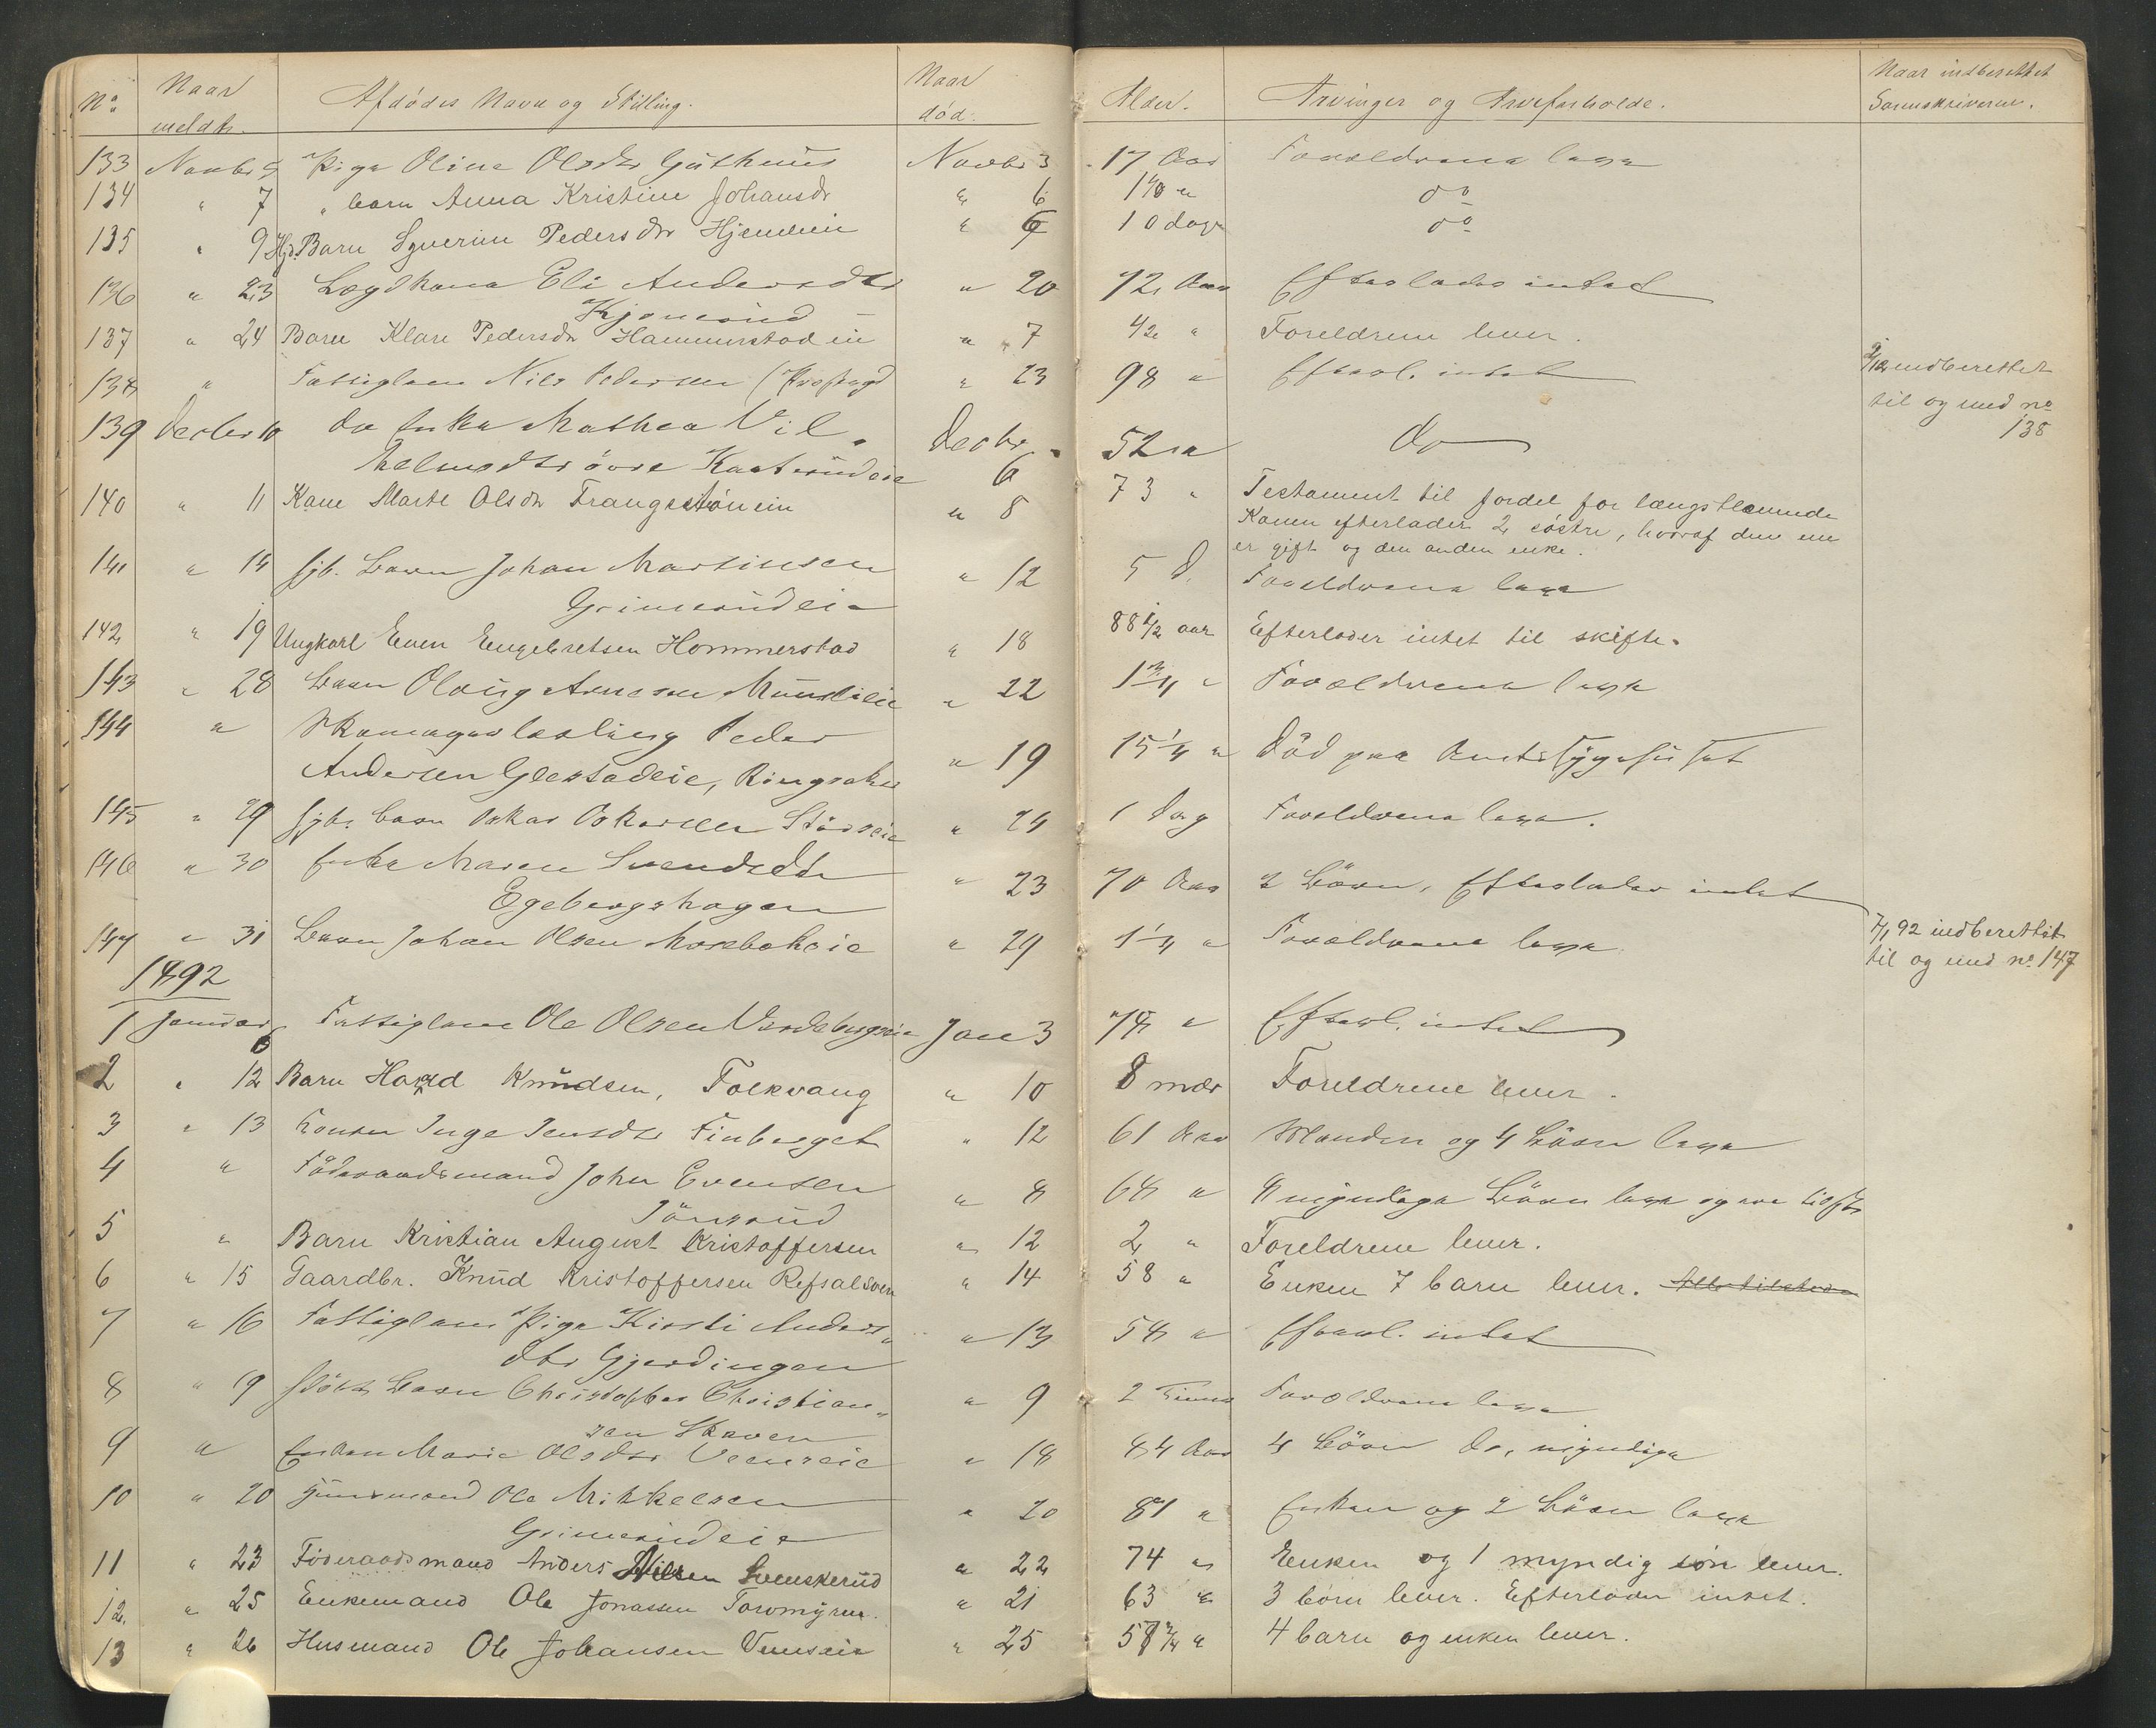 No. Naar meldt. Afdødes Navn og Stilling. Naar død. Alder. Arvinger og Arveforholde. Naar indberettet Sorenskriveren.
133 Novbr 5 Pige Oline Olsdtr Novbr 3 17 Aar Forældrene leve
134 " 7 " barn Anna Kristine Johansdr " 6 do
135 " 9 Barn Syverine Pedersdtr Hjemlein " 6 10 dage do
136 " 23 Lægdkone Eli Andersdtr " 20 72 Aar Efterlader intet
137 " 24 Barn Klare Pedersdr Hammerstadein " 7 " Foreldrene lever.
138 " Fattiglem Nils Pedersen " 23 98 " Efterl. intet
2/12 indberettet
til og med no
138
139 Decbr 10 do Enke Mathea Vil- Decbr 52 " do
helmsdtr øvre 6
140 " 11 Kone Marte Olsdr " 8 73 " Testament til fordel for længstlevende
Konen efterlader 2 søstre, hvoraf den ene
er gift og den anden enke.
141 " 14 Barn Johan Martinsen " 12 5 d. Forældrene leve
Grimerudeie
142 " 19 Ungkarl Even Engebretsen Hommerstad " 18 88 1/2 aar Efterlader intet til skifte.
143 " 28 Barn Olaug Arnesen " 22 1 3/4 " Forældrene leve
144 " Skomagerlærling Peder
Andersen Glestadeie, Ringsaker " 19 15 1/4 " Død paa Amtssygehuset
145 " 29 Barn Oskar Oskarsen " 24 1 Dag Forældrene leve.
146 " 30 Enke Maren Svendsdtr " 23 70 Aar 2 Børn, Efterlader intet
Egebergshagen
147 " 31 Barn Johan Olsen " 29 1 1/4 " Forældrene leve
7/1 92 indberettet
til og med no 147
1892
1 Januar 6 Fattiglem Ole Olsen Jan 3 78 " Efterl. intet
2 " 12 Barn Knudsen, Folkvang " 10 8 mdr Foreldrene lever.
3 " 13 Konen Inge Jensdtr Finberget " 12 61 Aar Manden og 4 Børn leve
4 " Föderaadsmand John Evensen " 8 68 " myndige Börn leve og
5 " Barn Kristian August Kristoffersen " 12 2 " Foreldrene lever.
6 " 15 Gaardbr. Knud Kristoffersen " 14 58 " Enken 7 barn lever.
7 " 16 Fattiglem Pige Kirsti Anders- " 13 58 " Efterl. intet
dtr Gjerdingen
8 " 19 Barn Christopher Christian- " 9 2 Timer Forældrene leve
sen
9 " Enken Marie Olsdtr " 18 84 Aar 4 Börn do, myndige
10 " 20 Ole Mikkelsen " 20 81 " Enken og 2 Börn leve
Grimerudeie
11 " 23 Föderaadsmand Anders Nilsen Svenskerud " 22 74 " Enken og 1 myndig sön lever.
12. " 25 Enkemand Ole Jonassen " 21 63 " 3 börn lever. Efterlader intet.
13 " 26 Husmand Ole Johansen " 25 " 4 barn og enken lever.